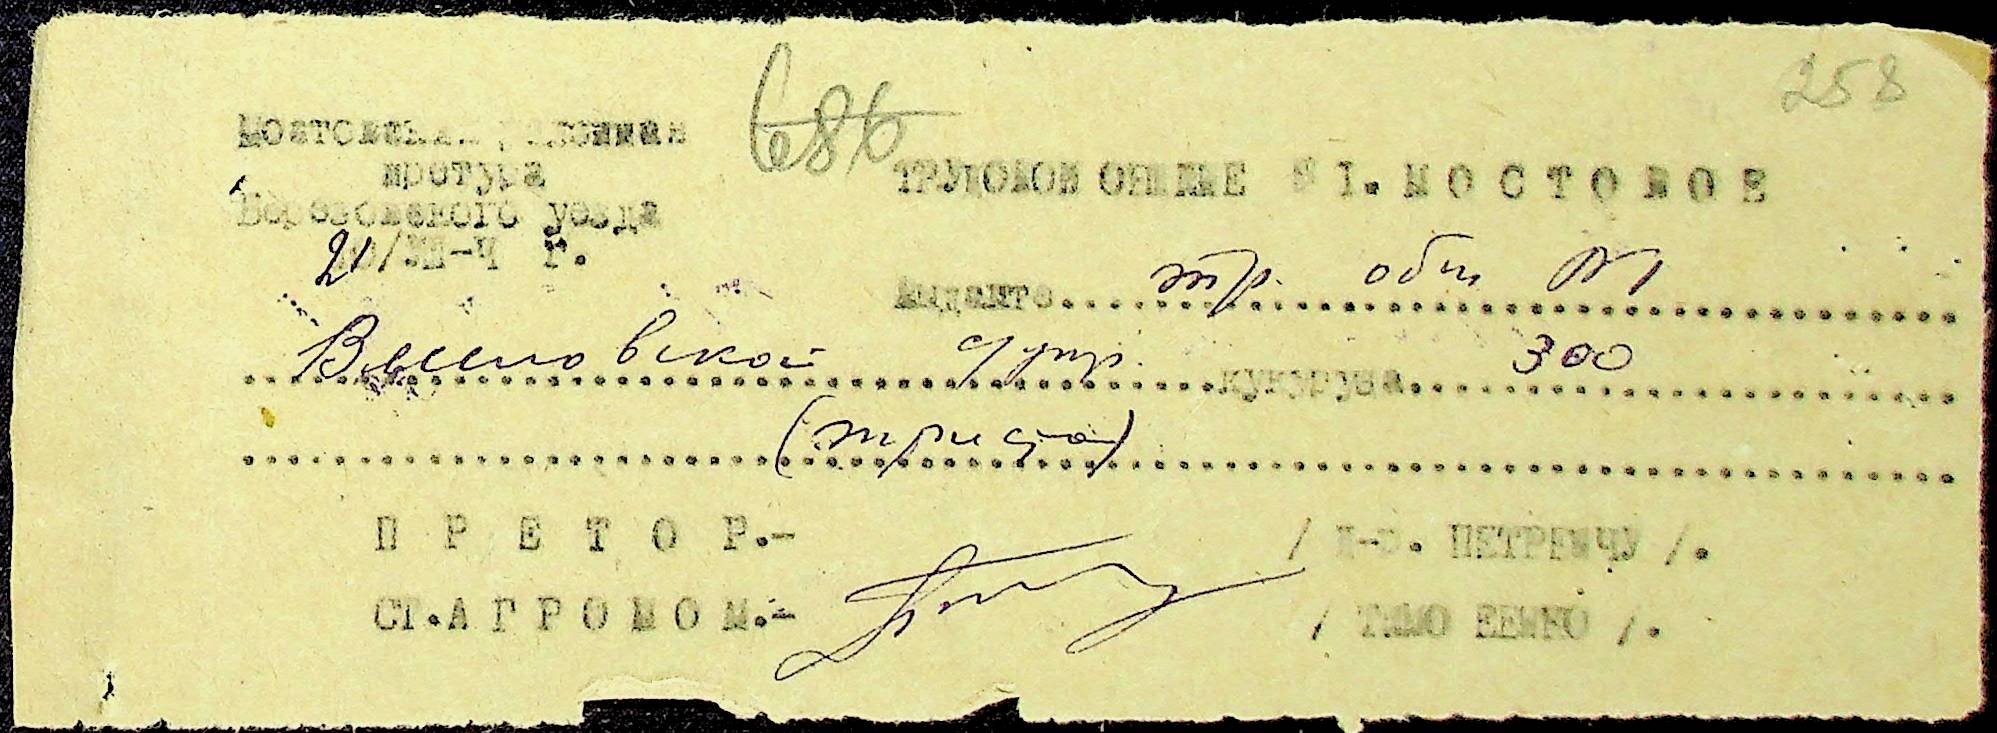 686
258
Мостовская районная
претура
Березовского уезда
21/XII-Ч г.
ТРУДОВОЙ ОБЩИНЕ № 1. М О С Т О В О Е
Выдайте.......тр. общ №1
Веселовской ........кукуруза....300
(триста)
П Р Е Т О Р.- / И-О. ПЕТРЕИЧУ /.
СТ.А Г Р О Н О М.- / ТИМО ЕЕНКО /.